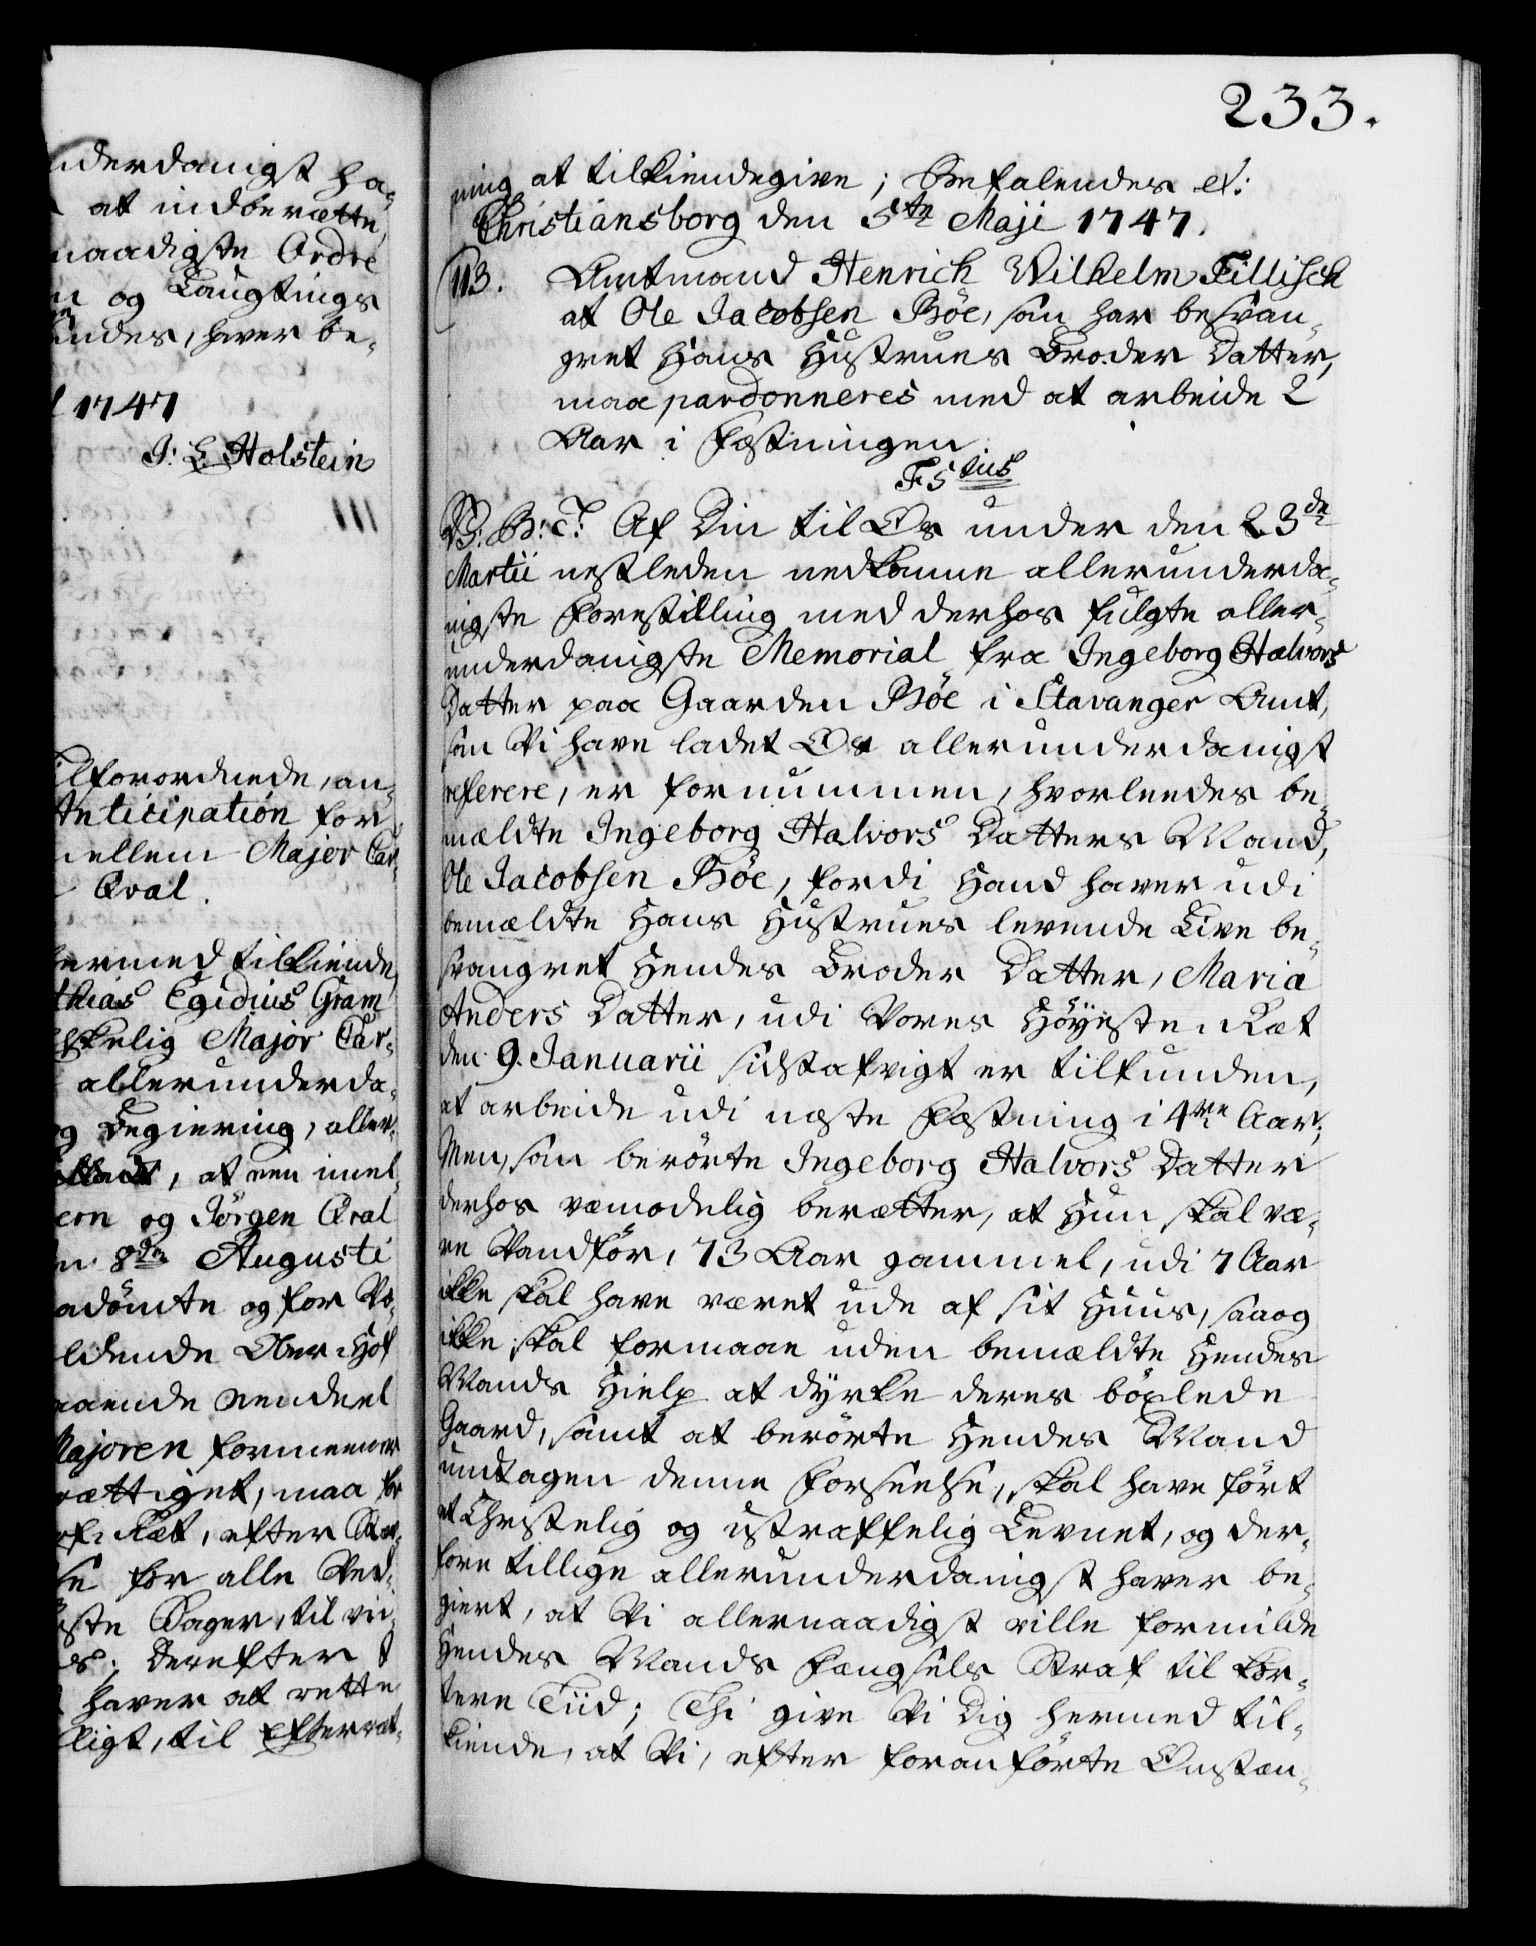 nderdanigst ha-
at indberætte
naadigste Ordre
og Laugtings
indes, hver be-
1747
J: L: Holstein
111
ilforordnede, an-
Anticipation for
mellem Major Car-
Qval.
hermed tilkiende,
thias Egidius Gram
Major Car-
allerunderda-
og Begiering, aller-
at een imel-
ern og Jörgen Qval
8de Augusti
adömte og for Vo-
ldende Over-Hof
endeel
Majoren formeener
rættiget, maa for
Ræt, efter
for alle Ved-
iste Sager, til vii-
Derefter
haver at rette
ligt, til Efterræt-
233.
ning at tilkiendegive; Befalendes etc:
Christiansborg den 5te Maji 1747.
113. Amtmand Henrich Wilhelm Tillisch
at Ole Jacobsen Böe, som har besvan-
gret Hans Hustrues Broder Datter,
maa pardonneres med at arbeide 2
Aar i Fæstningen.
F 5tus
V. G: T: Af Din til Os under den 23de
Martii nestleden nedkomne allerunderda-
nigste Forestilling med derhos fulgte aller-
underdanigste Memorial fra Ingeborg Halvors
Datter paa Gaarden Böe i Stavanger Amt,
som Vi have ladet Os allerunderdanigst
referere, er fornummen, hvorleedes be-
mældte Ingeborg Halvors Datters Mand,
Ole Jacobsen Böe, fordi Hand haver udi
bemældte Hans Hustrues levende Live be-
svangret Hendes Broder Datter, Maria
Anders Datter, udi Vores Höyeste-Ræt
den 9. Januarii sidstafvigt er tilfunden,
at arbeide udi næste Fæstning i 4re Aar;
Men, som berörte Ingeborg Halvors Datter
derhos vemodelig berætter, at Hun skal væ-
re Vandför, 73 Aar gammel, udi 7 Aar
ikke skal have været ude af sit Huus, saa og
ikke skal formaae uden bemældte Hendes
Mands Hielp at dyrke deres böxlede
Gaard, samt at berörte Hendes Mand
undtagen denne Forseelse, skal have fört
et Christelig og ustraffelig Levnet, og der-
fore tillige allerunderdanigst haver be-
giert, at Vi allernaadigst ville formilde
Hendes Mands Fængsels Straf til kor-
tere Tiid; Thi give Vi Dig hermed til-
kiende, at Vi, efter foranförte Omstæn-